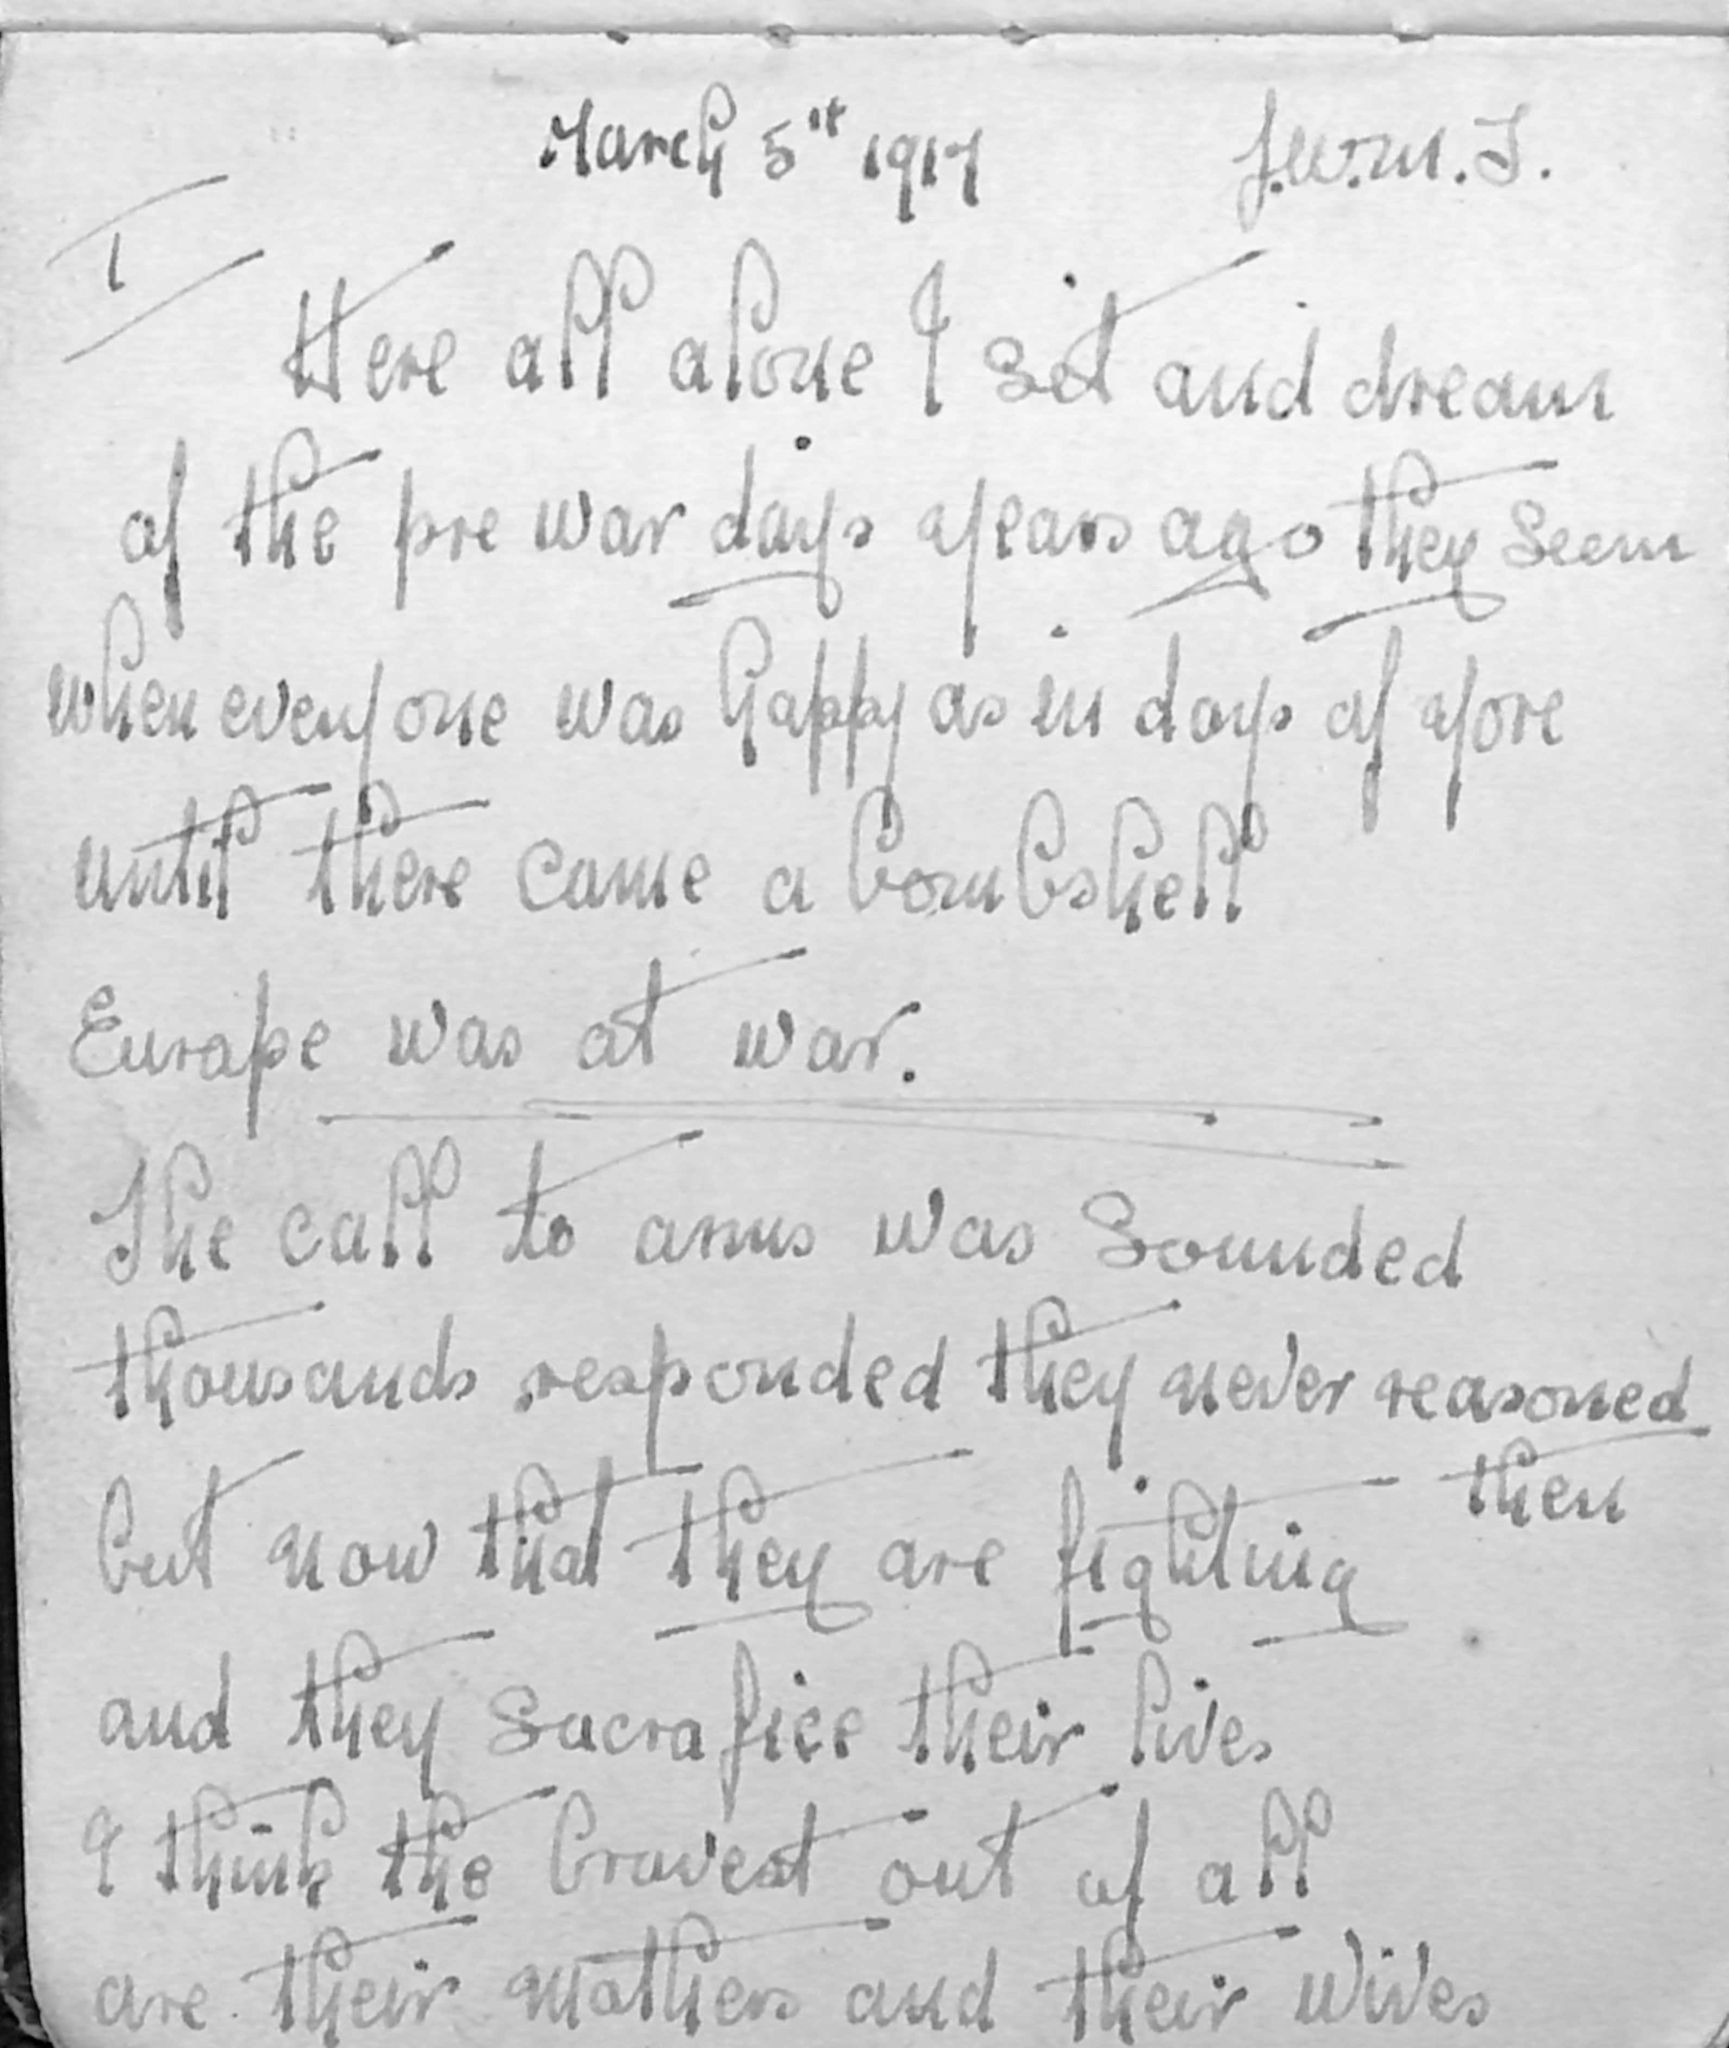 March 5st 1917 J.W.M.T.
1
Here all alone I sit and dream
of the pre war days years ago they seem
when everyone was happy as in days of yore
until there came a bombshell
Europe was at war.
The call to arms was Sounded
thousands responded they never reasoned
then
but now that they are fighting
and they Sacrafice their lives
I think the bravest out of all
are their mothers and their wives